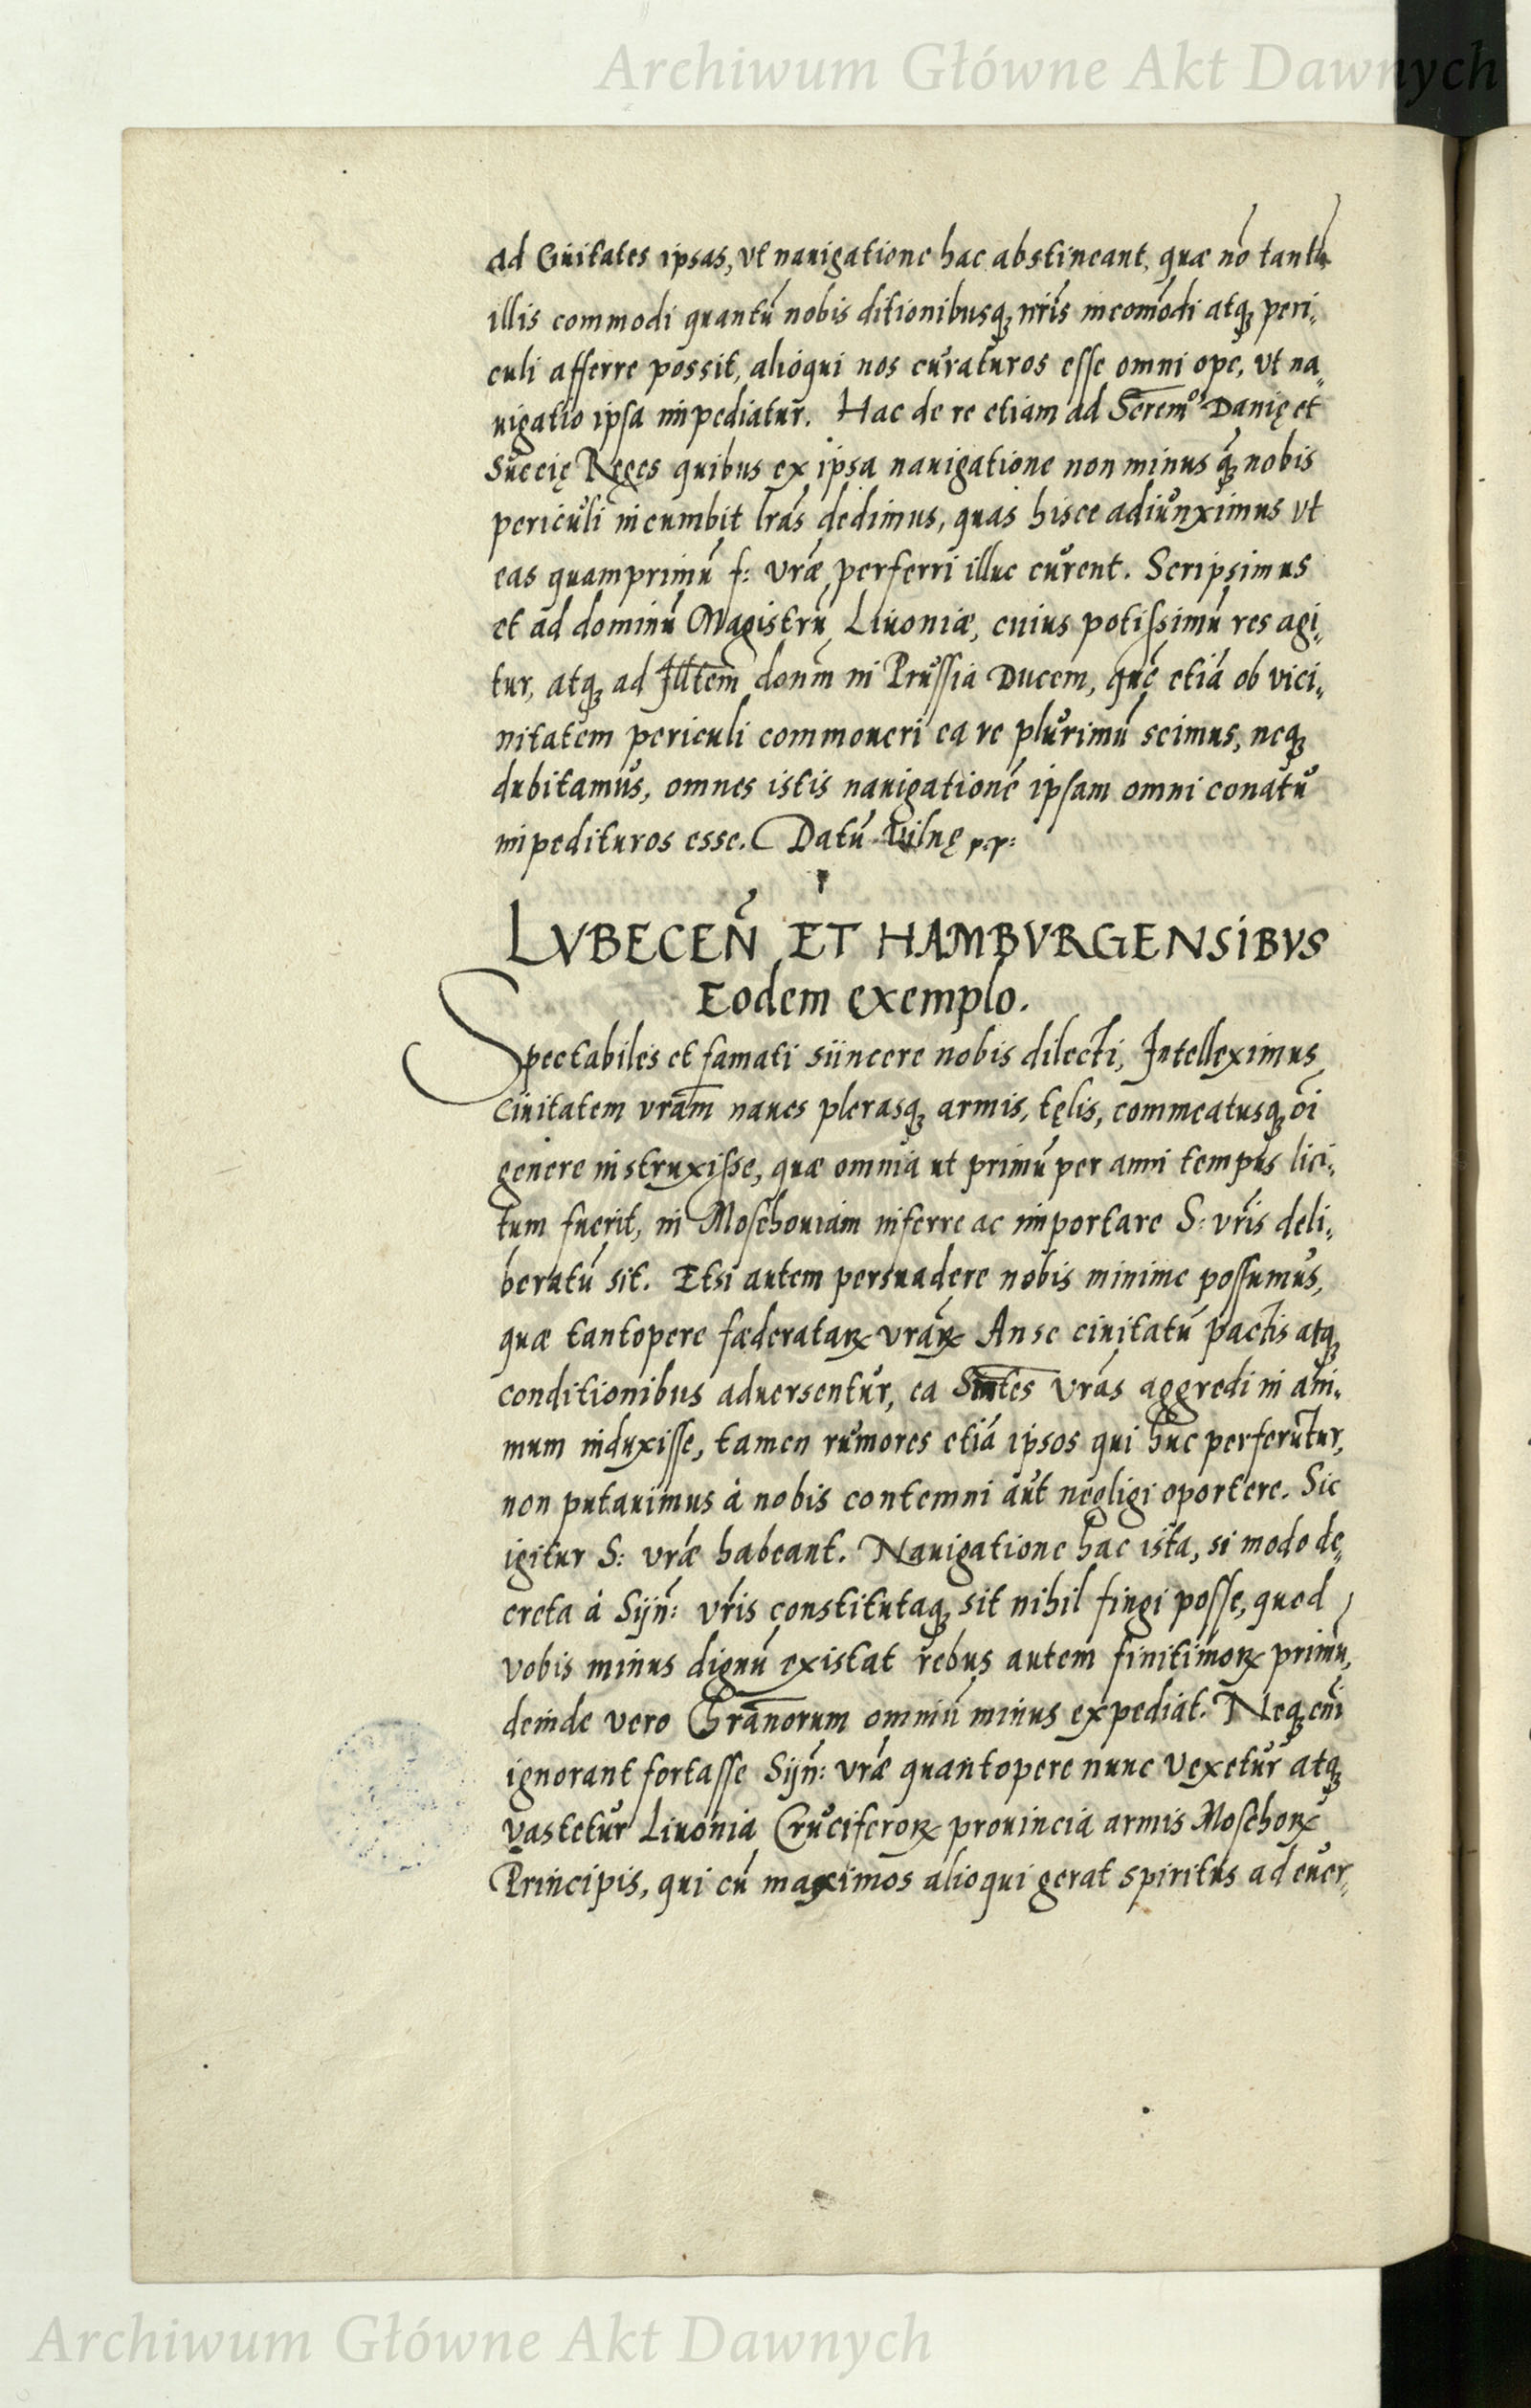 Archiwum Główne Akt Dawnych
ad Ciuitates ipsas, vt nauigatione hac abstineant, quæ nõ tantũ
illis commodi quantũ nobis ditionibusq; nr̃is incom̃odi atq; peri„
culi afferre possit, alioqui nos curaturos esse omni ope, vt na„
uigatio ipsa impediatur. Hac de re etiam ad Serem̃os Danię et
Suecię Reges quibus ex ipsa nauigatione non minus q̃; nobis
periculi incumbit lr̃as dedimus, quas hisce adiunximus vt
eas quamprimũ f: vr̃æ perferri illuc curent. Scripsimus
et ad dominũ Magistrũ Liuoniæ, cuius potissimũ res agi„
tur, atq; ad Illtem̃ donm̃ in Prussia Ducem, quẽ etiã ob vici„
nitatem periculi commoueri ea re plurimũ scimus, neq;
dubitamus, omnes istis nauigationẽ ipsam omni conatu
impedituros esse. Datũ Vilnę p.p:
LVBECEÑ ET HAMBVRGENSIBVS
Eodem exemplo.
Spectabiles et famati siincere nobis dilecti, Intelleximus
Ciuitatem vrãm naues plerasq; armis, tęlis, commeatusq; oĩ
genere instruxisse, quæ omnia ut primũ per anni tempus lici„
tum fuerit, in Moschouiam inferre ac importare S: vr̃is deli„
beratũ sit. Etsi autem persuadere nobis minime possumus,
quæ tantopere fæderataꝝ vrãꝝ Anse ciuitatũ pactis atq;
conditionibus aduersentur, ea Sintes̃ vrãs aggredi in ani„
mum induxisse, tamen rumores etiã ipsos qui huc perferũtur,
non putauimus à nobis contemni aut negligi oportere. Sic
igitur S: vr̃æ habeant. Nauigatione hac ista, si modo de„
creta à Sijñ: vr̃is constitutaq; sit nihil fingi posse, quod
vobis minus dignũ existat rebus autem finitimoꝝ primũ,
deinde vero Chrãnorum omniũ minus expediat. Neq; enĩ
ignorant fortasse Sijñ: vr̃æ quantopere nunc vexetur atq;
vastetur Liuonia Cruciferoꝝ prouincia armis Moschoꝝ
Principis, qui cũ maximos alioqui gerat spiritus ad euer„
Archiwum Główne Akt Dawnych